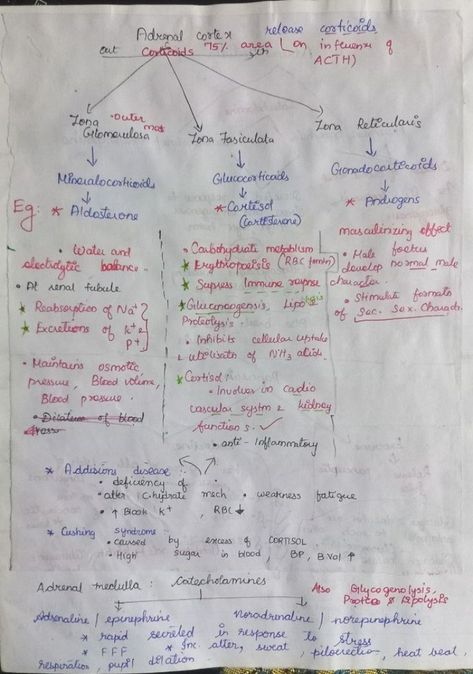 Adrenal cortex release corticoids
out Corticoids 75% area on influence of
in ACTH)
Zona Outer most
Glomerulosa
Zona Fasiculata
Zona Reticularis
Mineralocorticoids
Glucocorticoids
Gonadocorticoids
Eg: * Aldosterone
* Cortisol
(corticosterone)
* Androgens
• Water and
electrolytic balance.
• At renal tubule.
* Reabsorption of Na+
* Excretions of K+ &
P+
• Maintains osmotic
pressure, Blood volume,
Blood pressure.
• Dilation of blood
• Carbohydrate metablism
* Erythropoeisis (RBC formtn)
* Supress Immune repnse
* Gluconeogensis, Lipolysis
Proteolysis.
• Inhibits cellular uptake
& utilisatn of NH3 acids.
* Cortisol:
• Involves in cadio
vascular systm & kidney
functions. ✓
• anti-Inflammatory
masculinizing effect
• Male foetus
develop normal male
character.
• Stimulate formatn
of Sec. Sex. Charactr.
* Addisions disease:
• deficiency of
• alter C.hydrate mech • weakness fatigue
• ↑ Blook K+, RBC ↓
* Cushing syndrome
• caused by excess of CORTISOL
• High sugar in blood, BP, B.Vol ↑
Adrenal medulla: Catecholamines
Also Glycogenolysis,
Proteo & Lipolysis
Adrenaline / epinephrine
Noradrenaline / norepinephrine
* rapid secreted in response to stress
* FFF * Inc. alter, sweat, piloerection, heat beat,
respiration, pupil dilation.